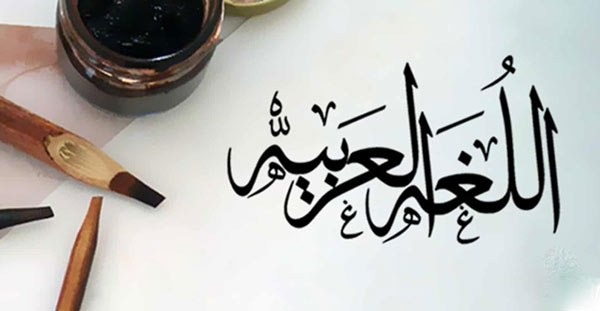 اللُغة العَرَبية